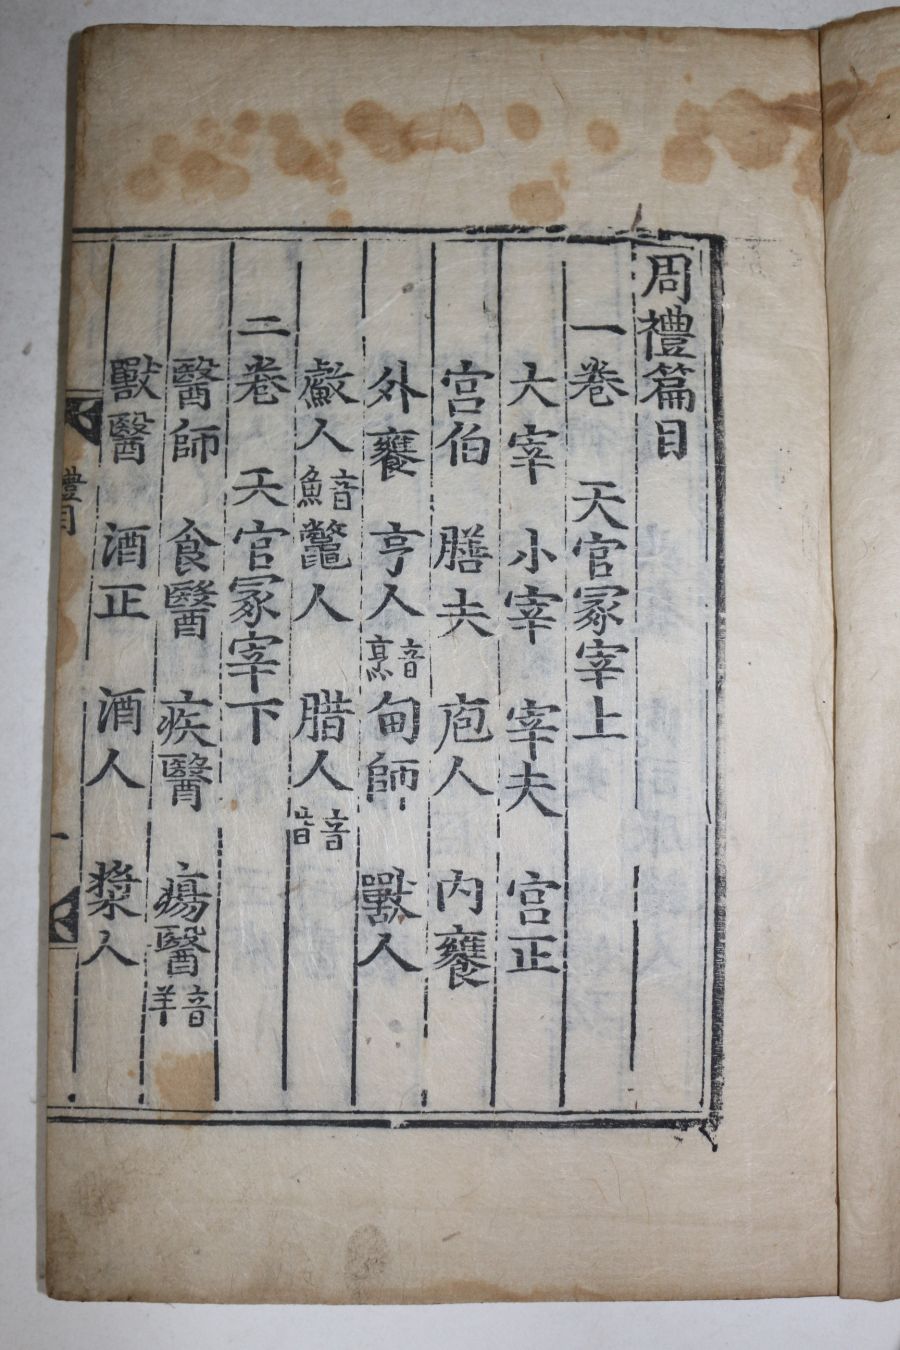 周禮篇目
一卷 天官冢宰上
大宰 小宰 宰夫 宫正
宫伯 膳夫 庖人 内饔
外饔 亨人音烹 甸師 獸人
䱷人音魚 鼈人 腊人音昔
二卷 天官冢宰下
醫師 食醫 疾醫 瘍醫音羊
獸醫 酒正 酒人 漿人
禮目
一